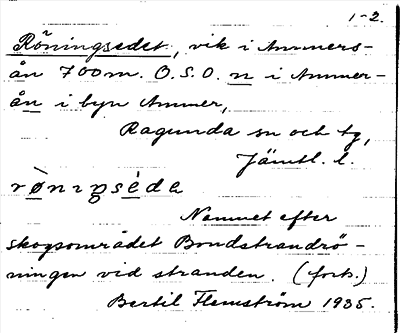 1-2.
Röningsedet, vik i Ammers-
ån 700 m. O.S.O. n i Ammer-
ån i byn Ammer,
Ragunda sn och tg,
Jämtl. l.
rø̀nıŋsèda
Namnet efter
skogsområdet Bondstrandrö-
ningen vid stranden. (forts.)
Bertil Flemström 1935.